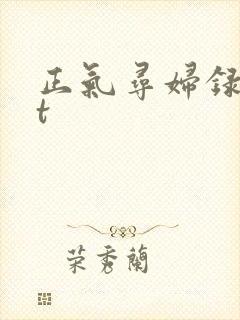 正氣尋婦録
t
荣秀蘭